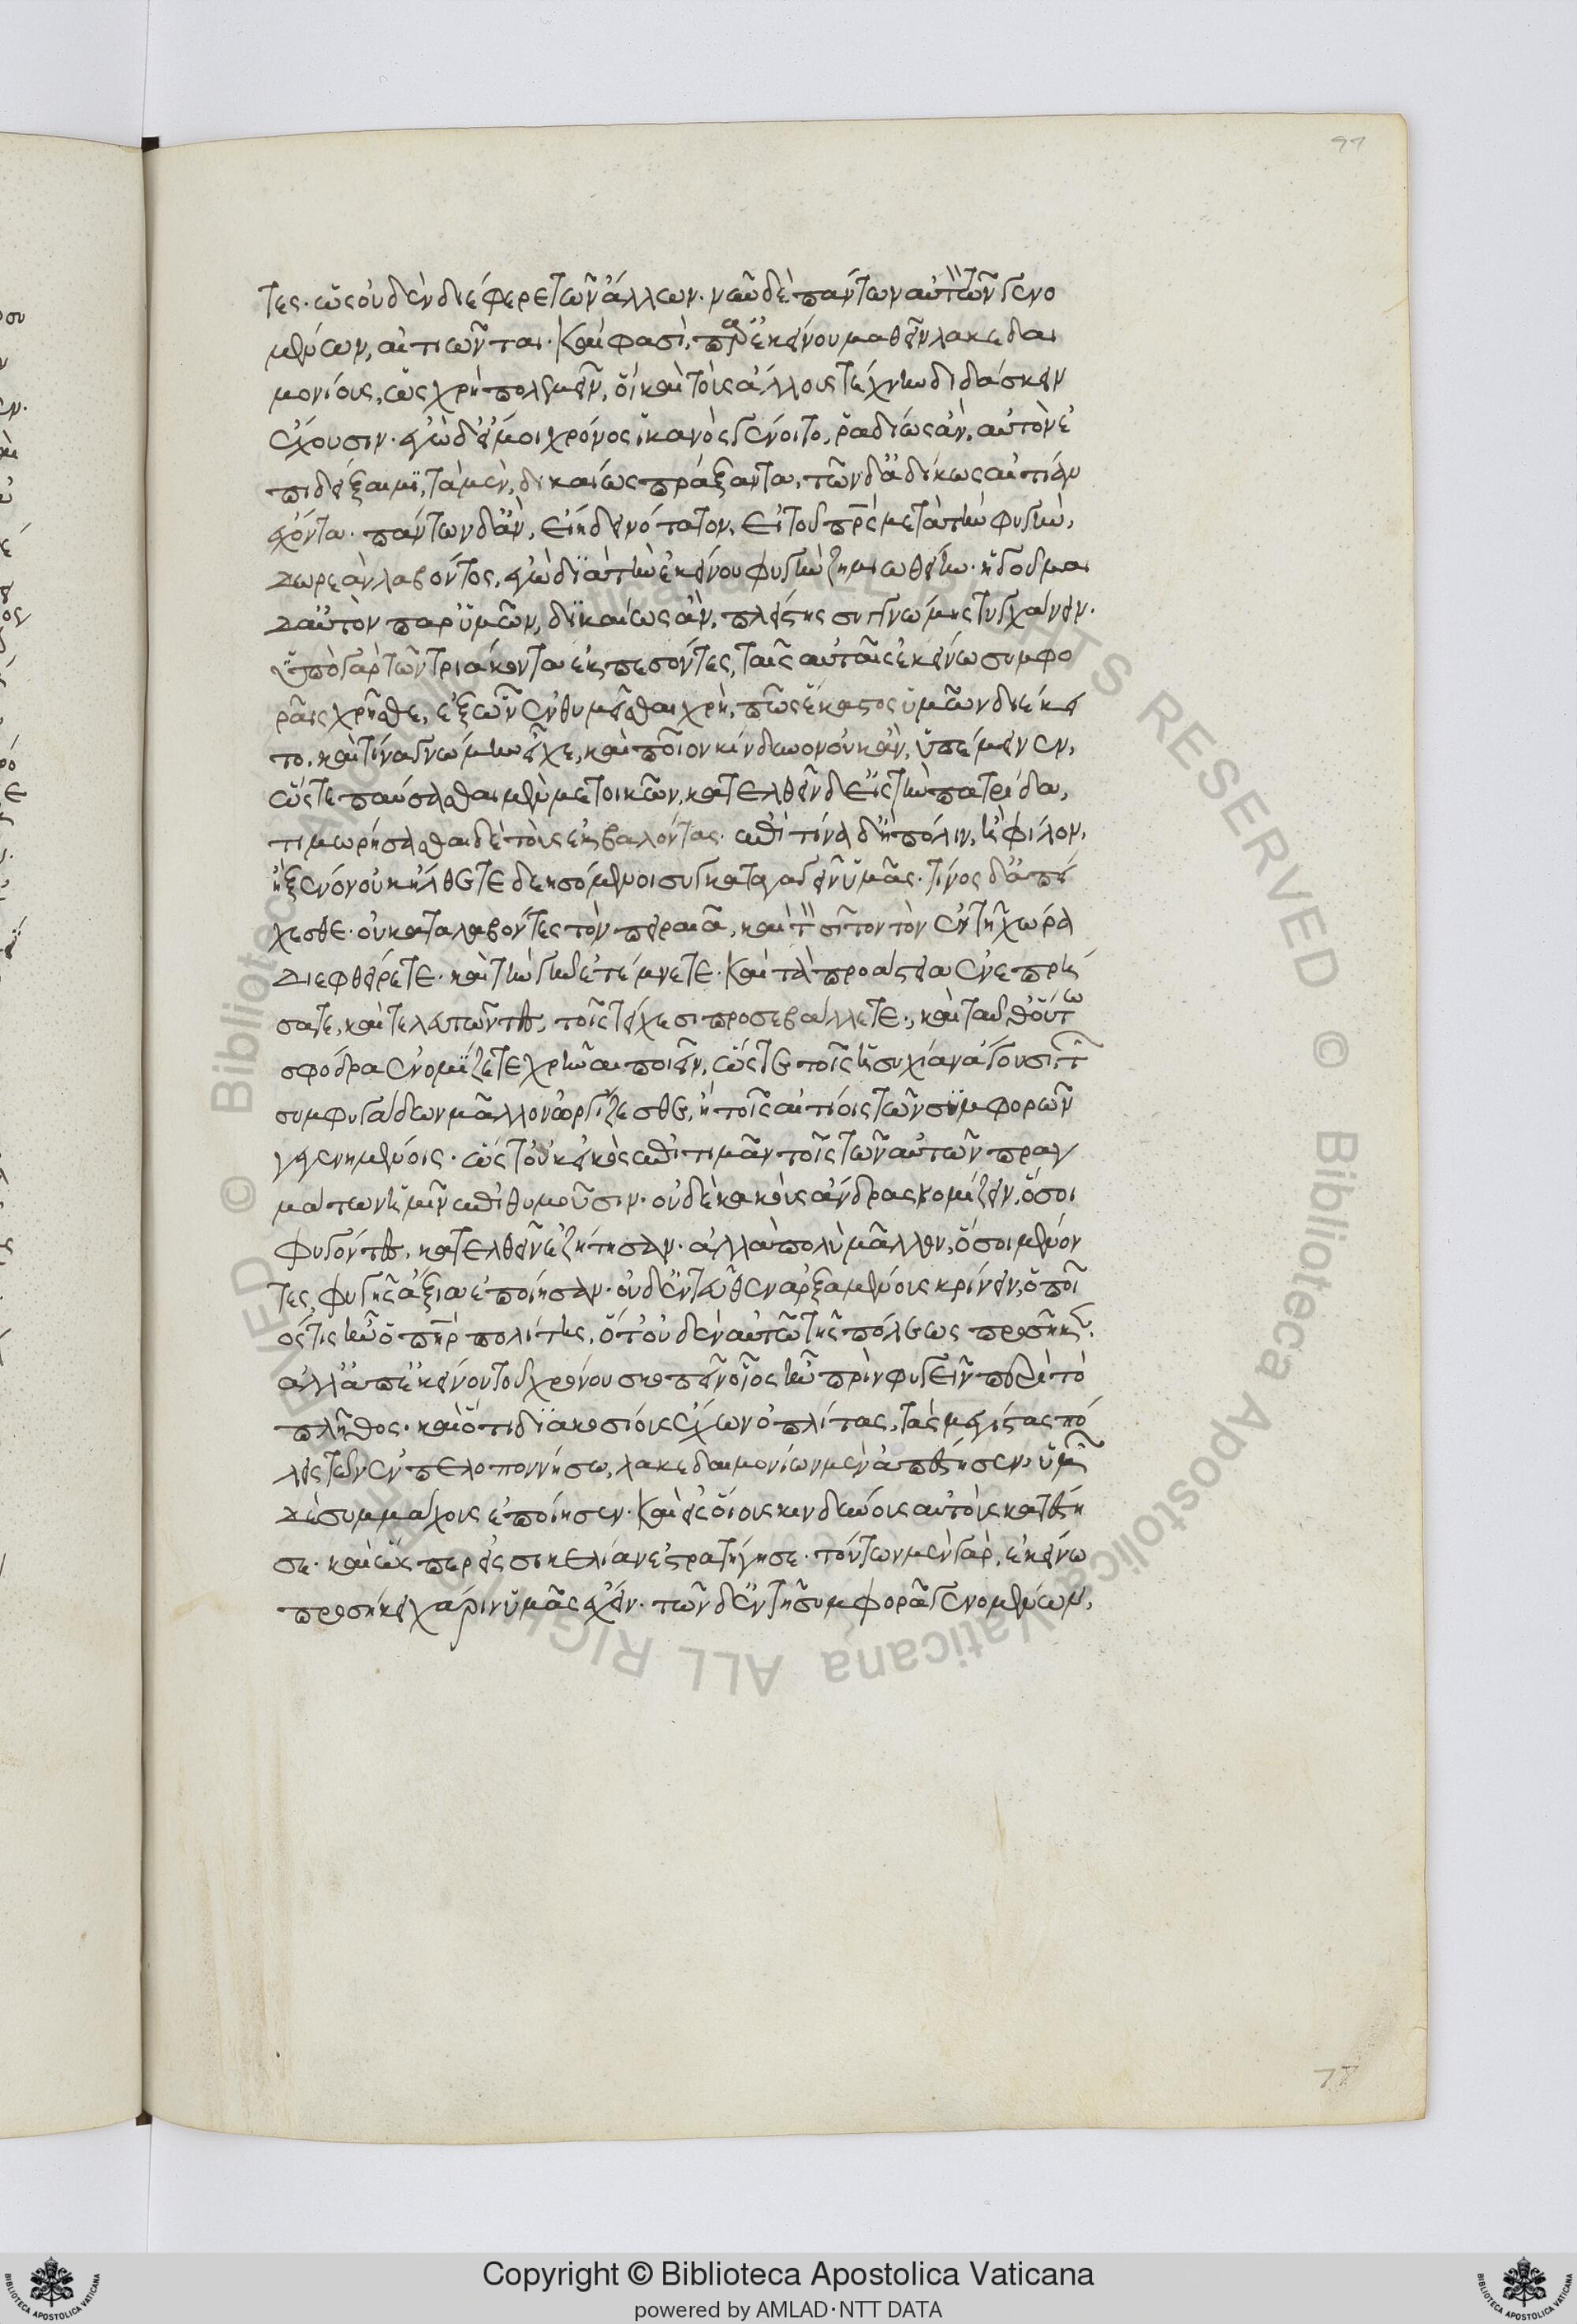 77
τες· ὡς οὐδὲν διέφερε τῶν ἄλλων· νῦν δὲ πάντων αὐτὸν τῶν γενο
μένων, αἰτιῶνται· καί φασι, παρ' ἐκείνου μαθεῖν λακεδαι
μονίους, ὡς χρὴ πολεμεῖν, οἳ καὶ τοὺς ἄλλους τέχνην διδάσκειν
ἔχουσιν· ἐγὼ δ' εἴ μοι χρόνος ἱκανὸς γένοιτο, ῥαδίως ἂν, αὐτὸν ἐ
πιδείξαιμι, τὰ μὲν, δικαίως πράξαντα, τῶν δ' ἀδίκως αἰτίαν
ἔχοντα· πάντων δ' ἂν, εἴη δεινότατον, εἰ τοῦ πατρὸς μετὰ τὴν φυγὴν,
δωρεὰν λαβόντος, ἐγὼ διὰ τὴν ἐκείνου φυγὴν ζημιωθείην· ἡγοῦμαι
δ' αὐτὸν παρ' ὑμῶν, δικαίως ἂν, πλείστης συγγνώμης τυγχάνειν·
ὑπὸ γὰρ τῶν τριάκοντα ἐκπεσόντες, ταῖς αὐταῖς ἐκείνῳ συμφο
ραῖς χρῆσθε, ἐξ ὧν ἐνθυμεῖσθαι χρὴ, πῶς ἕκαστος ὑμῶν διέκει
το, καὶ τίνα γνώμην εἶχε, καὶ ποῖον κίνδυνον οὐκ ἂν, ὑπέμεινεν,
ὥστε παύσασθαι μὲν μετοικῶν, κατελθεῖν δ' εἰς τὴν πατρίδα,
τιμωρήσασθαι δὲ τοὺς ἐκβαλόντας· ἐπὶ τίνα δ' ἢ πόλιν, ἢ φίλον,
ἢ ξένον οὐκ ἤλθετε δεησόμενοι συγκαταγαγεῖν ὑμᾶς· τίνος δ' ἀπέ
χεσθε· οὐ καταλαβόντες τὸν πειραιᾶ, καὶ τὸν σῖτον τὸν ἐν τῇ χώρα
διεφθείρετε· καὶ τὴν γῆν ἐτέμνετε· καὶ τὰ προάστεια ἐνεπρή
σατε, καὶ τελευτῶντες, τοῖς τείχεσι προσεβάλλετε·, καὶ ταῦθ' οὕτω
σφόδρα ἐνομίζετε χρῆναι ποιεῖν, ὥστε τοῖς ἡσυχίαν ἄγουσι τῶν
συμφυγάδων μᾶλλον ὠργίζεσθε, ἢ τοῖς αἰτίοις τῶν συμφορῶν
γεγενημένοις· ὥστ' οὐκ εἰκὸς ἐπιτιμᾶν τοῖς τῶν αὐτῶν πραγ
μάτων ἡμῖν ἐπιθυμοῦσιν· οὐδὲ κακοὺς ἄνδρας νομίζειν, ὅσοι
φυγόντες, κατελθεῖν ἐζήτησαν· ἀλλὰ πολὺ μᾶλλον, ὅσοι μένον
τες, φυγῆς ἄξια ἐποίησαν· οὐδ' ἐντεῦθεν ἀρξαμένοις κρίνειν, ὁποῖ
ός τις ἦν ὁ πατὴρ πολίτης, ὅτ' οὐδὲν αὐτῷ τῆς πόλεως προσῆκεν·
ἀλλ' ἀπ' ἐκείνου τοῦ χρόνου σκοπεῖν οἷος ἦν πρὶν φυγεῖν περὶ τὸ
πλῆθος· καὶ ὅτι διακοσίους ἔχων ὁπλίτας, τὰς μεγίστας πό
λεις τῶν ἐν πελοποννήσῳ, λακεδαιμονίων μὲν ἀπέστησεν, ὑμῖν
δὲ συμμάχους ἐποίησεν· καὶ εἰς οἵους κινδύνους αὐτοὺς κατέστη
σε· καὶ ὡς περὶ σικελίαν ἐστρατήγησε· τούτων μὲν γὰρ, ἐκείνῳ
προσήκει χάριν ὑμᾶς ἔχειν· τῶν δ' ἐν τῇ συμφορᾷ γενομένων,
77
© Biblioteca Apostolica Vaticana ALL RIGHTS RESERVED © Biblioteca Apostolica Vaticana ALL RIGHTS RESERVED
Copyright © Biblioteca Apostolica Vaticana
powered by AMLAD·NTT DATA